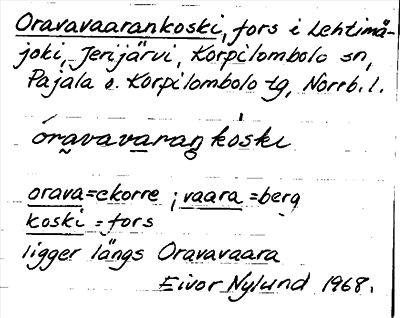 Oravavaarankoski, fors i Lehtimä-
joki, Jerijärvi, Korpilombolo sn,
Pajala o. Korpilombolo tg, Norrb. l.
óravavaraŋkòski
orava=ekorre ; vaara=berg
koski = fors
ligger längs Oravavaara
Eivor Nylund 1968.